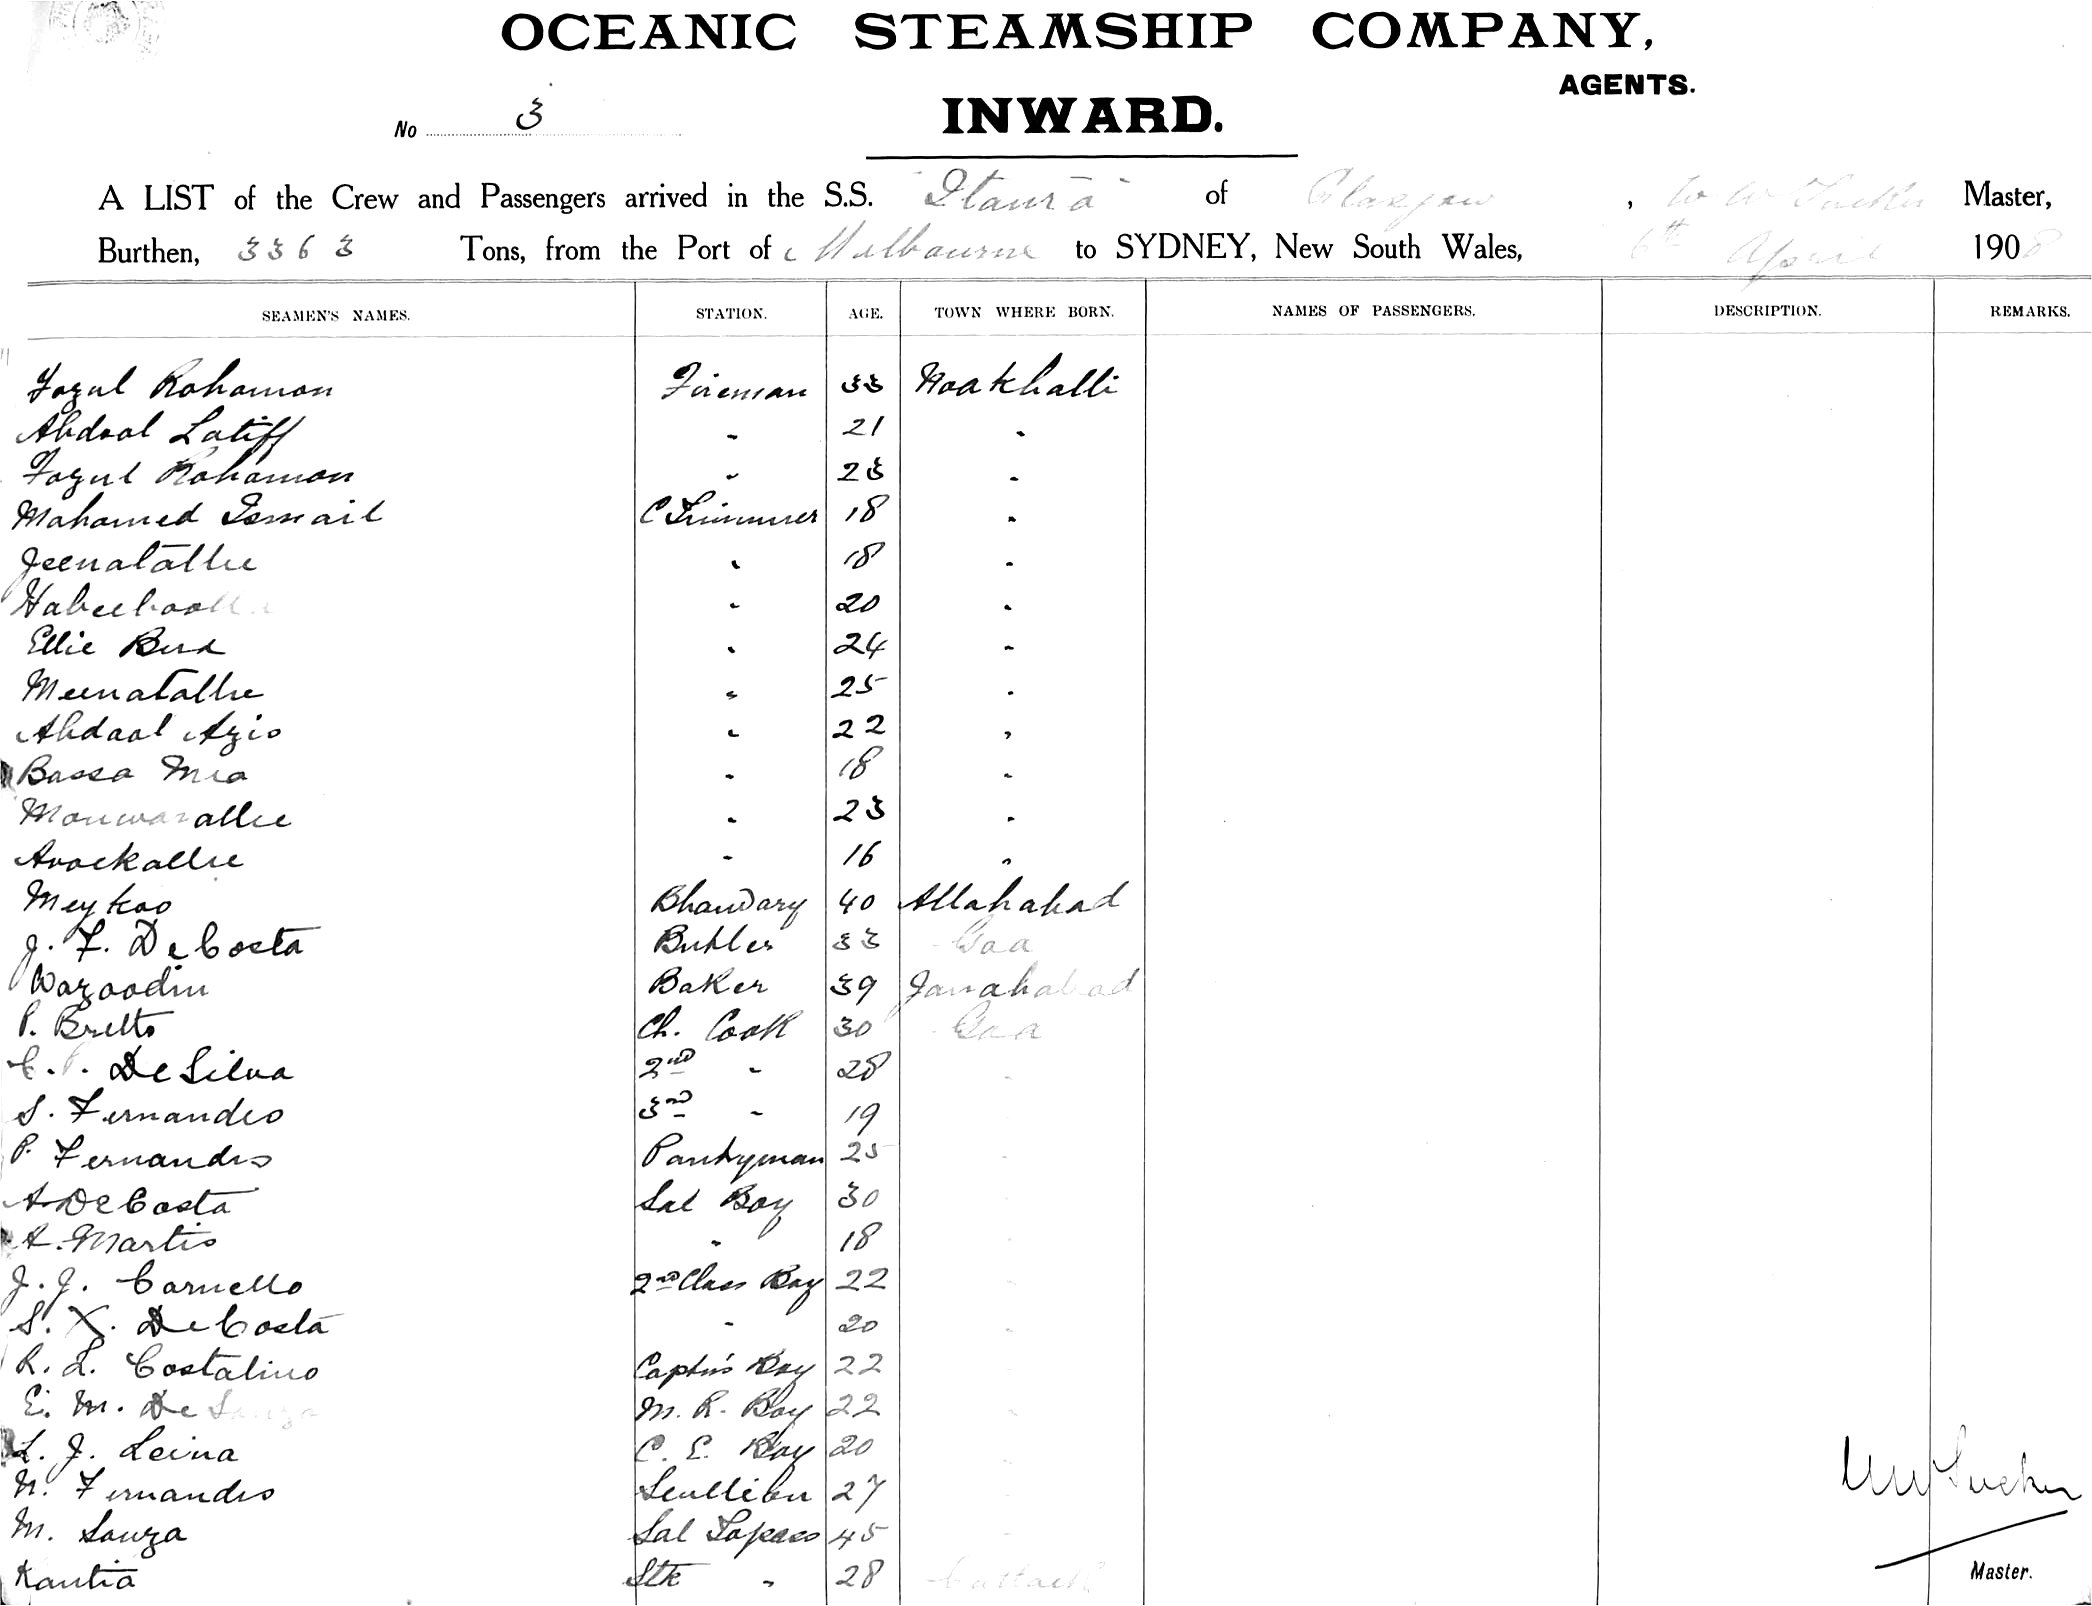 OCEANIC STEAMSHIP COMPANY,
AGENTS.
No 3 INWARD.
A LIST of the Crew and Passengers arrived in the S.S. "Itaura" of Glasgow, W W Tucker Master,
Burthen, 3363 Tons, from the Port of Melbourne to SYDNEY, New South Wales, 6th April 1908
SEAMEN'S NAMES. STATION. AGE. TOWN WHERE BORN. NAMES OF PASSENGERS. DESCRIPTION. REMARKS.
Fozul Rohamon Fireman 33 Noakhalli
Abdool Latiff " 21 "
Fozul Rohamon " 23 "
Mahomed Ismail C Trimmer 18 "
Jeenatallie " 18 "
Habeeboolla " 20 "
Ellie Bux " 24 "
Meenatallie " 25 "
Abdool Azis " 22 "
Bassa Mia " 18 "
Monwarallie " 23 "
Arockallie " 16 "
Meykoo Bhandary 40 Allahabad
J. F. DeCosta Butler 33 Goa
Wazoodin Baker 39 Janahabad
P. Britto Ch. Cook 30 Goa
C. P. DeSilva 2nd " 28 "
S. Fernandes 3rd " 19
P. Fernandes Pantryman 25 "
A. DeCosta Sal Boy 30
A. Martis " 18 "
J. J. Carnello 2nd Class Boy 22 "
S. X. DeCosta " 20 "
R. L. Costalino Captn's Boy 22 "
E. M. DeSouza M. R. Boy 22 "
L. J. Leina C. E. Boy 20 "
N. Fernandes Scullion 27 "
M. Souza Sal Topass 45 "
Kantia Stk " 28 Cuttack
W W Tucker
Master.